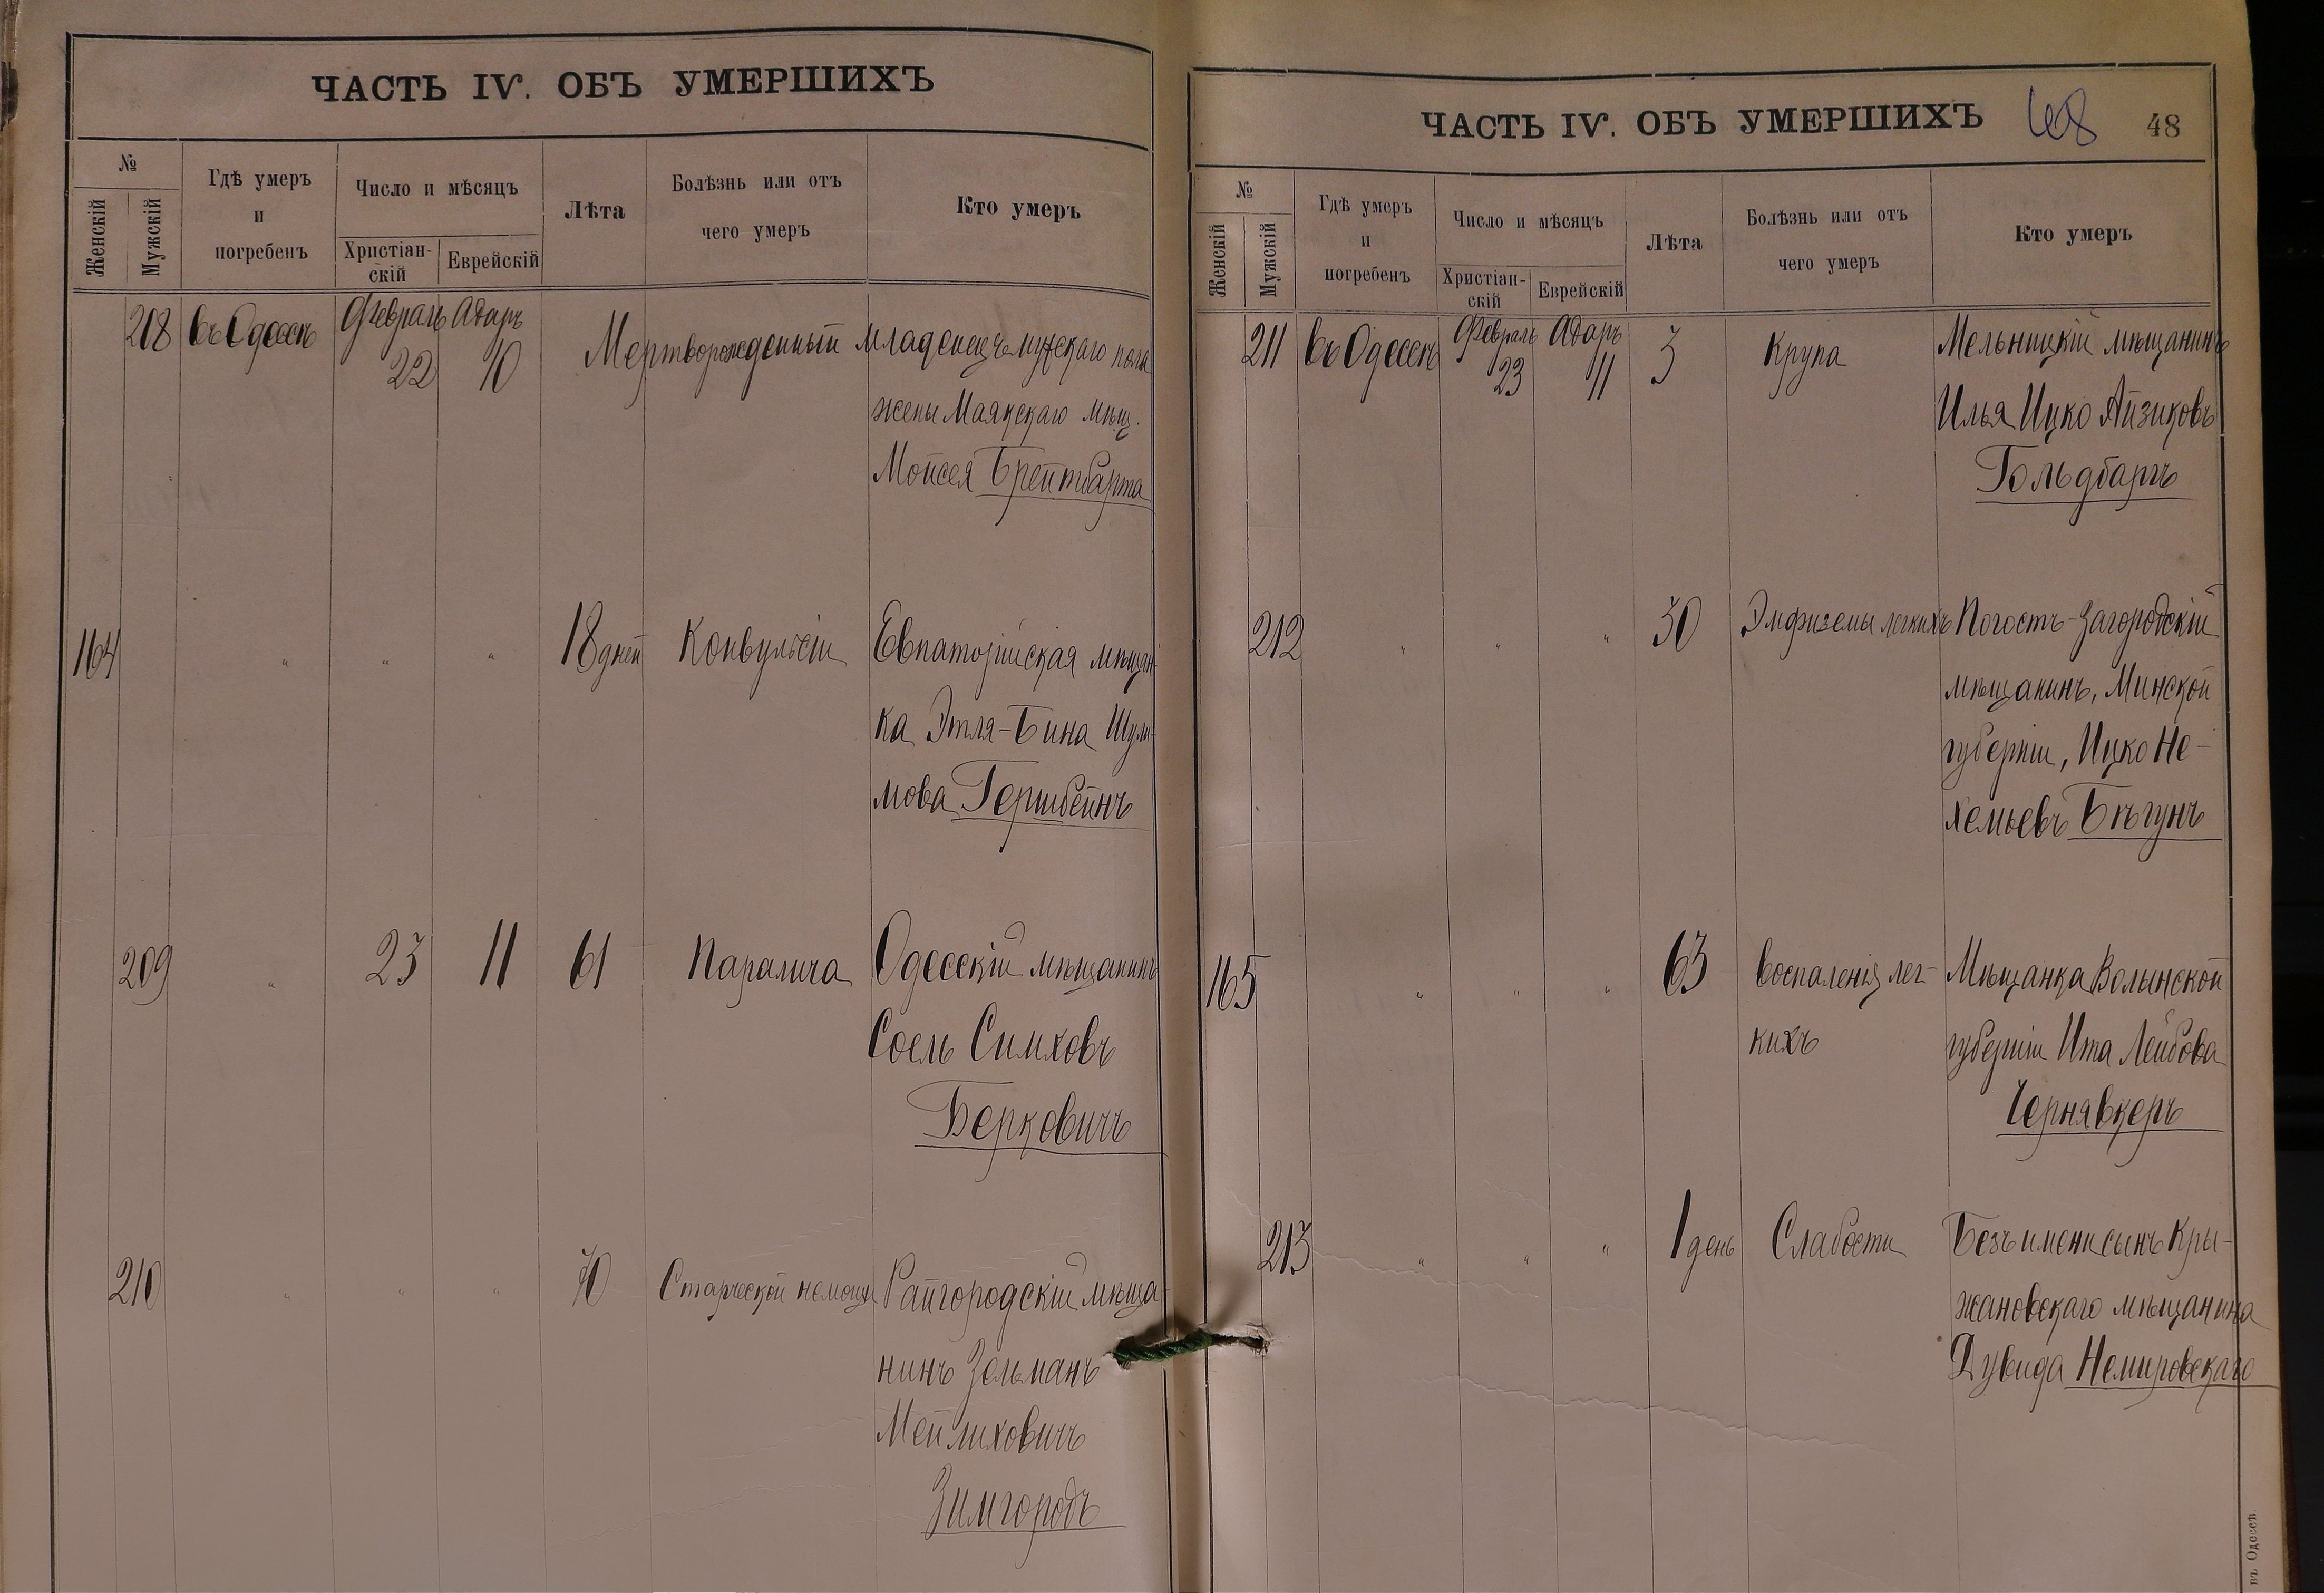 ЧАСТЬ IV. ОБЪ УМЕРШИХЪ
№
Женскій
Мужскій
Гдѣ умеръ
и
погребенъ
Число и мѣсяцъ
Христіан-
скій
Еврейскій
Лѣта
Болѣзнь или отъ
чего умеръ
Кто умеръ
208 въ Одессѣ Февраль Адаръ
22 10
Мертворожденный младенецъ мужскаго пола
жены Маякскаго мѣщ.
Мойсея Брейтбарта
164 " " " 18 дней Конвульсіи Евпаторійская мѣщан-
ка Этля-Бина Шули-
мова Гершбейнъ
209 " 23 11 61 Паралича Одесскій мѣщанинъ
Соель Симховъ
Берковичъ
210 " " " 70 Старческой немощи Райгородскій мѣща-
нинъ Зельманъ
Мейлиховичъ
Зимгородъ
ЧАСТЬ IV. ОБЪ УМЕРШИХЪ 48 48
№
Женскій
Мужскій
Гдѣ умеръ
и
погребенъ
Число и мѣсяцъ
Христіан-
скій
Еврейскій
Лѣта
Болѣзнь или отъ
чего умеръ
Кто умеръ
211 въ Одессѣ Февраль Адаръ
23 11 3 Крупа Мельницкій мѣщанинъ
Илья Ицко Айзиковъ
Гольдбаргъ
212 " " " 30 Эмфиземы легкихъ Погостъ-Загородскій
мѣщанинъ, Минской
губерніи, Ицко Не-
хемьевъ Бѣгунъ
165 " " " 63 Воспаленія лег- Мѣщанка Волынской
кихъ губерніи Ита Лейбова
Чернявкеръ
213 " " " 1 день Слабости Безъ имени сынъ Кры-
жановскаго мѣщанина
Дувида Немировскаго
въ Одессѣ.